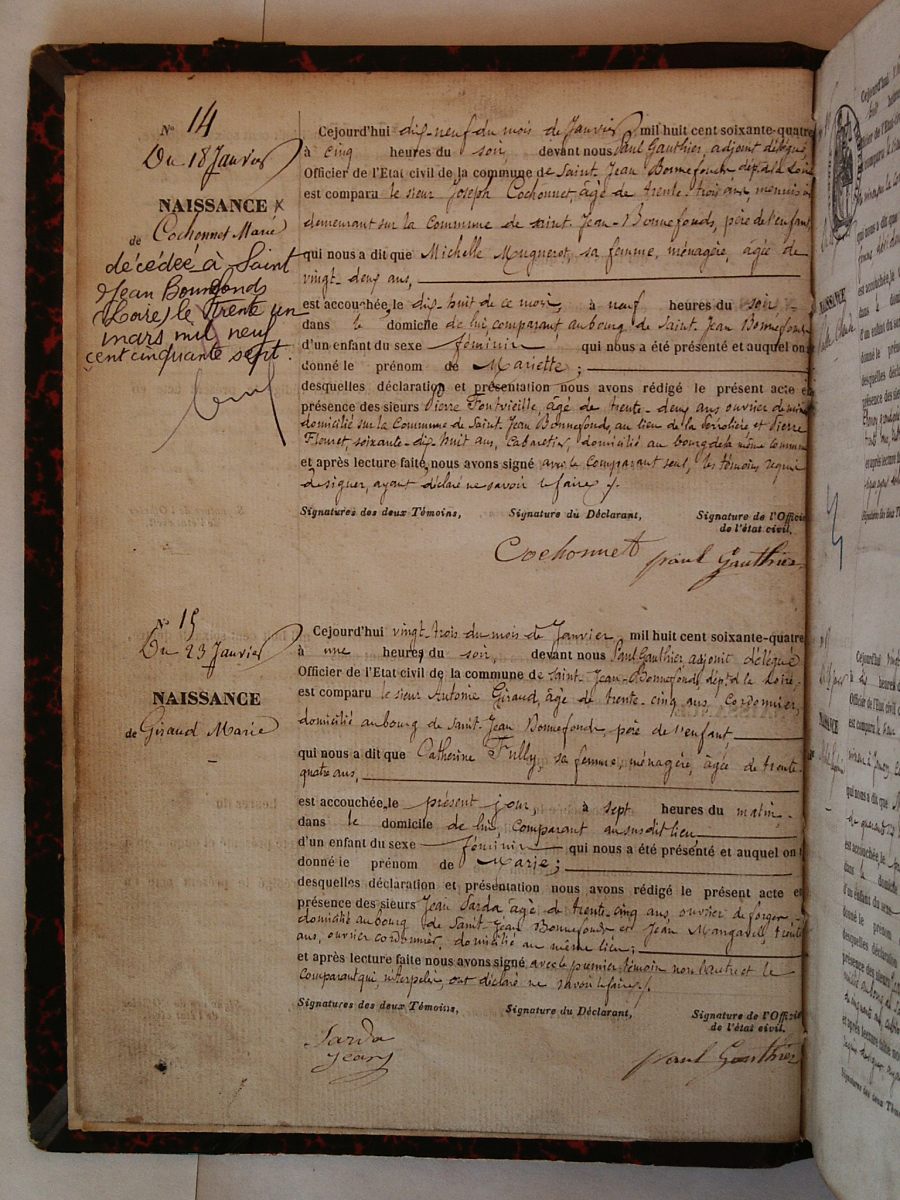 N° 14
Du 18 Janvier
NAISSANCE
de Cochonnet Marie
décédée à Saint
Jean Bonnefonds
(Loire) le trente un
mars mil neuf
cent cinquante sept.
Cejourd'hui dix-neuf du mois de Janvier mil huit cent soixante-quatre
à cinq heures du soir, devant nous Paul Gauthier, adjoint délégué
Officier de l'Etat civil de la commune de Saint Jean Bonnefonds dépt de la Loire
est comparu le sieur Joseph Cochonnet, âgé de trente-trois ans,
demeurant sur la Commune de Saint-Jean-Bonnefonds, père de l'enfant
qui nous a dit que Michelle Mugnerot, sa femme, ménagère, âgée de
vingt-deux ans,
est accouchée, le dix-huit de ce mois, à neuf heures du soir
dans le domicile de lui, comparant, au bourg de Saint Jean Bonnefonds
d'un enfant du sexe féminin qui nous a été présenté et auquel on
donné le prénom de Mariette ;
desquelles déclaration et présentation nous avons rédigé le présent acte e
présence des sieurs Pierre Fontvieille, âgé de trente-deux ans ouvrier de mine
domicilié sur la Commune de Saint Jean Bonnefonds, au lieu de la et Pierre
Flouret, soixante-dix huit ans, Cabaretier, domicilié au bourg de la même commune
et après lecture faite, nous avons signé avec le comparant seul, les témoins requis
de signer, ayant déclaré ne savoir le faire ./.
Signatures des deux Témoins, Signature du Déclarant, Signature de l'Offici
de l'état civil.
Cochonnet paul Gauthier
N° 15
Du 23 Janvier
NAISSANCE
de Giraud Marie
Cejourd'hui vingt-trois du mois de Janvier mil huit cent soixante-quatre
à une heure, du soir, devant nous Paul Gauthier, adjoint délégué
Officier de l'Etat civil de la commune de Saint-Jean-Bonnefonds, dépt de la Loire,
est comparu le sieur Antoine Giraud, âgé de trente-cinq ans, Cordonnier,
domicilié au bourg de Saint-Jean Bonnefonds, père de l'enfant
qui nous a dit que Catherine Fully, sa femme, ménagère, âgée de trente-
quatre ans,
est accouchée, le présent jour, à sept heures du matin,
dans le domicile de lui, comparant au susdit lieu
d'un enfant du sexe féminin qui nous a été présenté et auquel on
donné le prénom de Marie ;
desquelles déclaration et présentation nous avons rédigé le présent acte e
présence des sieurs Jean Sarda âgé de trente-cinq ans, ouvrier de forges
domicilié au bourg de Saint-Jean Bonnefonds et Jean Mangavel, trente
ans, ouvrier cordonnier, domicilié au même lieu ;
et après lecture faite nous avons signé avec le premier témoin non l'autre et le
comparant qui, interpelés, ont déclaré ne savoir le faire ./.
Signatures des deux Témoins, Signature du Déclarant, Signature de l'Offici
de l'état civil.
Sarda paul Gauthier
Jean